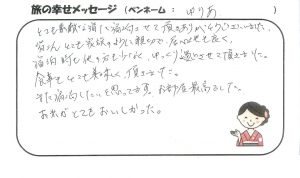 旅の幸せメッセージ (ペンネーム: ゆりあ )
とても素敵な宿に宿泊させて頂きありがとうございました。
皆さんとても家族の様に親切で、居心地も良く、
宿泊時も他の方も少なく、ゆっくり過ごさせて頂きました。
食事もとても美味しく頂きました。
また宿泊したいと思って、お部屋最高でした。
お水がとてもおいしかった。